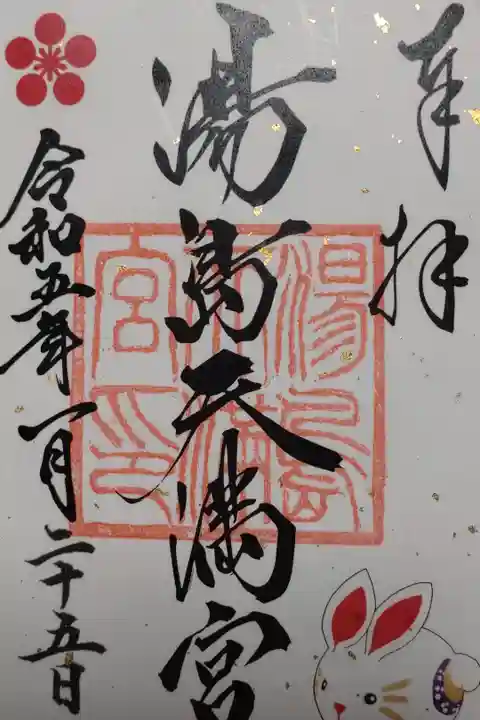 奉拝
湯島天満宮
令和五年一月二十五日
湯島
天満
宮印